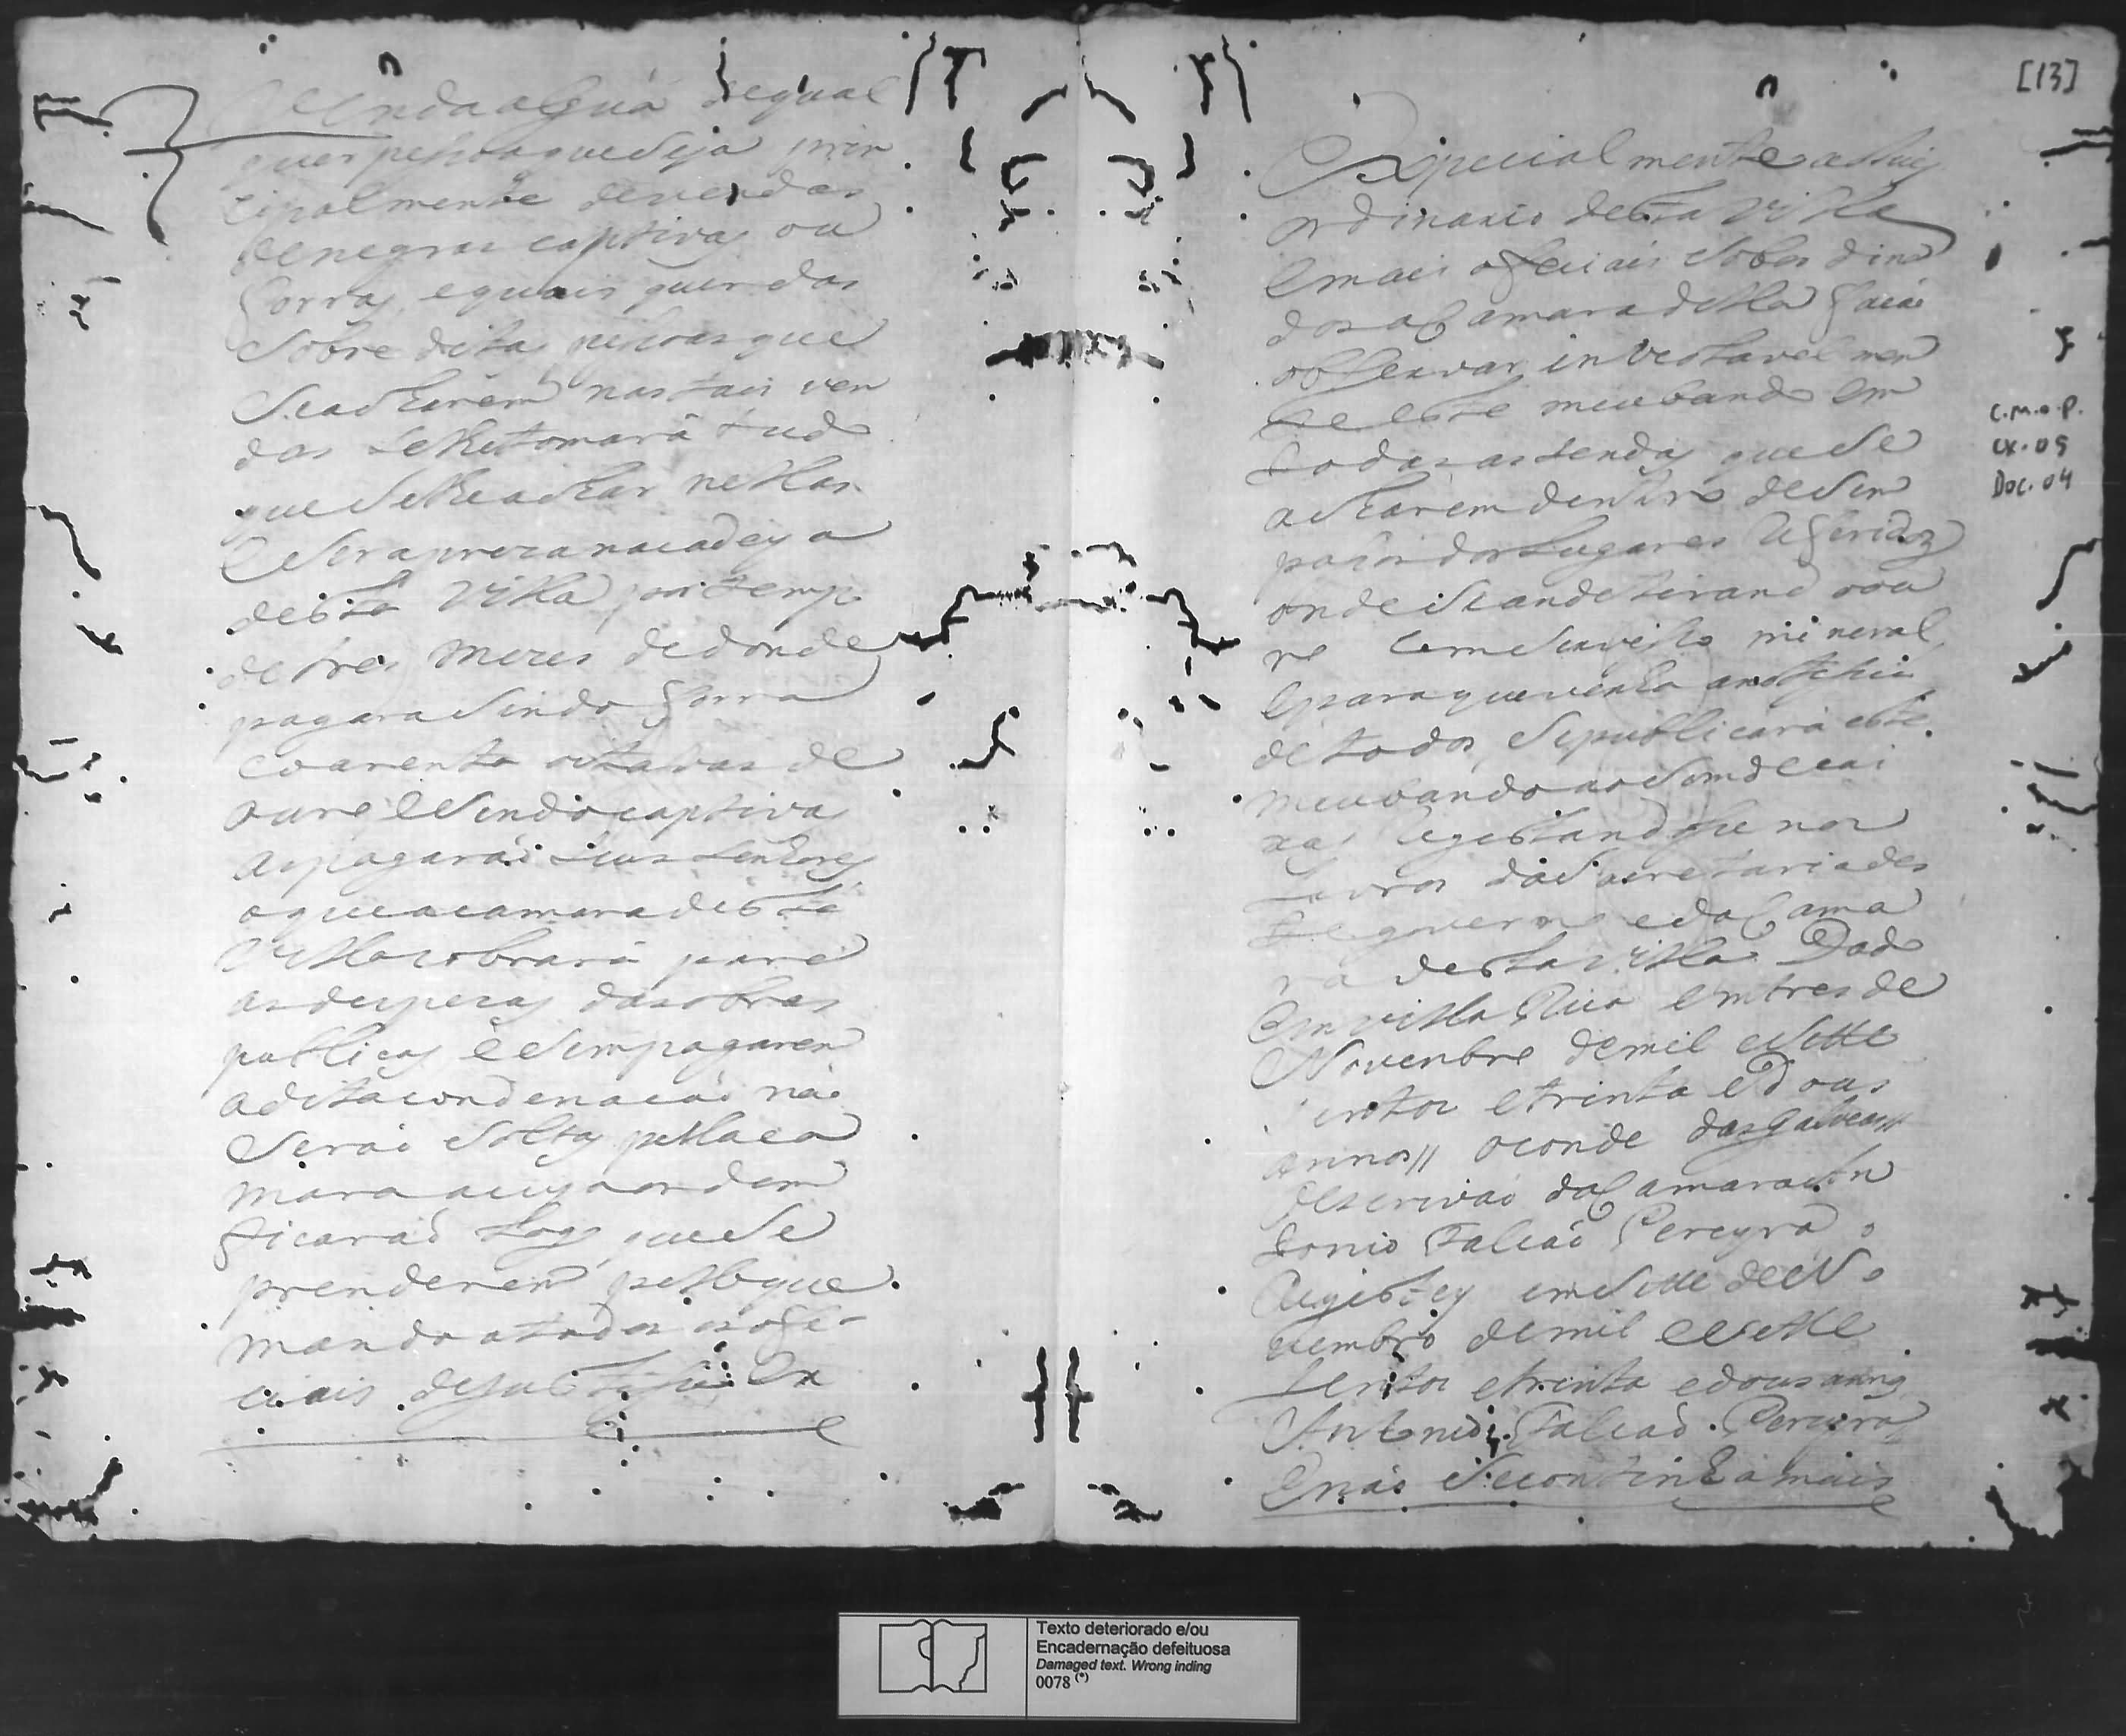 Venda alguã de qual
quer pessoa que seja prin
cipalmente de vendas
de negras captivas ou
forras, e quais quer das
sobre ditas pessoas que
se acharem nas tais ven
das se lhe tomará tudo
que se lhe achar nellas
e sera preza na cadeya
desta Villa por tempo
de tres mezes de donde
pagara sendo forra
coarenta oitavas de
ouro e sendo captivas
as pagaráõ seus senhores
o que a camara desta
Villa cobrará para
as despezas das obras
publicas e sem pagarem
a dita condenacaõ naõ
seraõ soltas pella ca
mara a cuja ordem
ficaraõ logo que se
prenderem pello que
mando a todos os ofe-
ciais de justiça Ex
[13]
Expecial mente a o Juis
ordinario desta Villa
e mais ofeciais sobordina
dos a Camara della facaõ
observar inviolavel men
te este meu bando em
todas as vendas que se
acharem dentro de sem
passos dos lugares referidos
onde se ande tirando ou
ro com serviço mineral
e para que venha a noticia
de todos se publicará este
meu bando ao som de cai
xas registandosse nos
Livros da Secretaria des
te governo e da Cama
ra desta Villa Dado
em Villa Rica em tres de
Novenbro de mil e sette
sentos e trinta e dous
annos// o conde das galveas//
O escrivaõ da Camara An
tonio Falcaõ Pereyra o
Registey em sette de No
vembro de mil e sette
sentos e trinta e dous annos
Antonio Falcaõ Pereyra
E naõ se continha mais
C.M.O.P.
CX. 05
Doc. 04
Texto deteriorado e/ou
Encadernação defeituosa
Damaged text. Wrong inding
0078 (*)